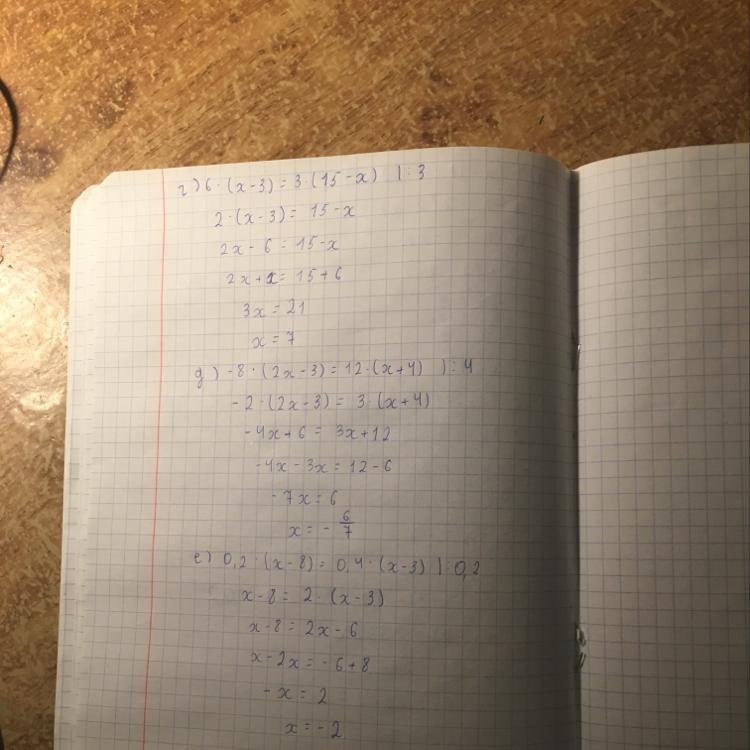 г) 6 · (x-3) = 3 · (15-x) | : 3
2 · (x-3) = 15-x
2x - 6 = 15-x
2x + x = 15 + 6
3x = 21
x = 7
д) -8 · (2x-3) = 12 · (x+4) | : 4
-2 · (2x-3) = 3 · (x+4)
-4x+6 = 3x+12
-4x - 3x = 12 - 6
-7x = 6
x = - 6/7
е) 0,2 · (x-8) = 0,4 · (x-3) | : 0,2
x-8 = 2 · (x-3)
x-8 = 2x-6
x-2x = -6+8
-x = 2
x = -2